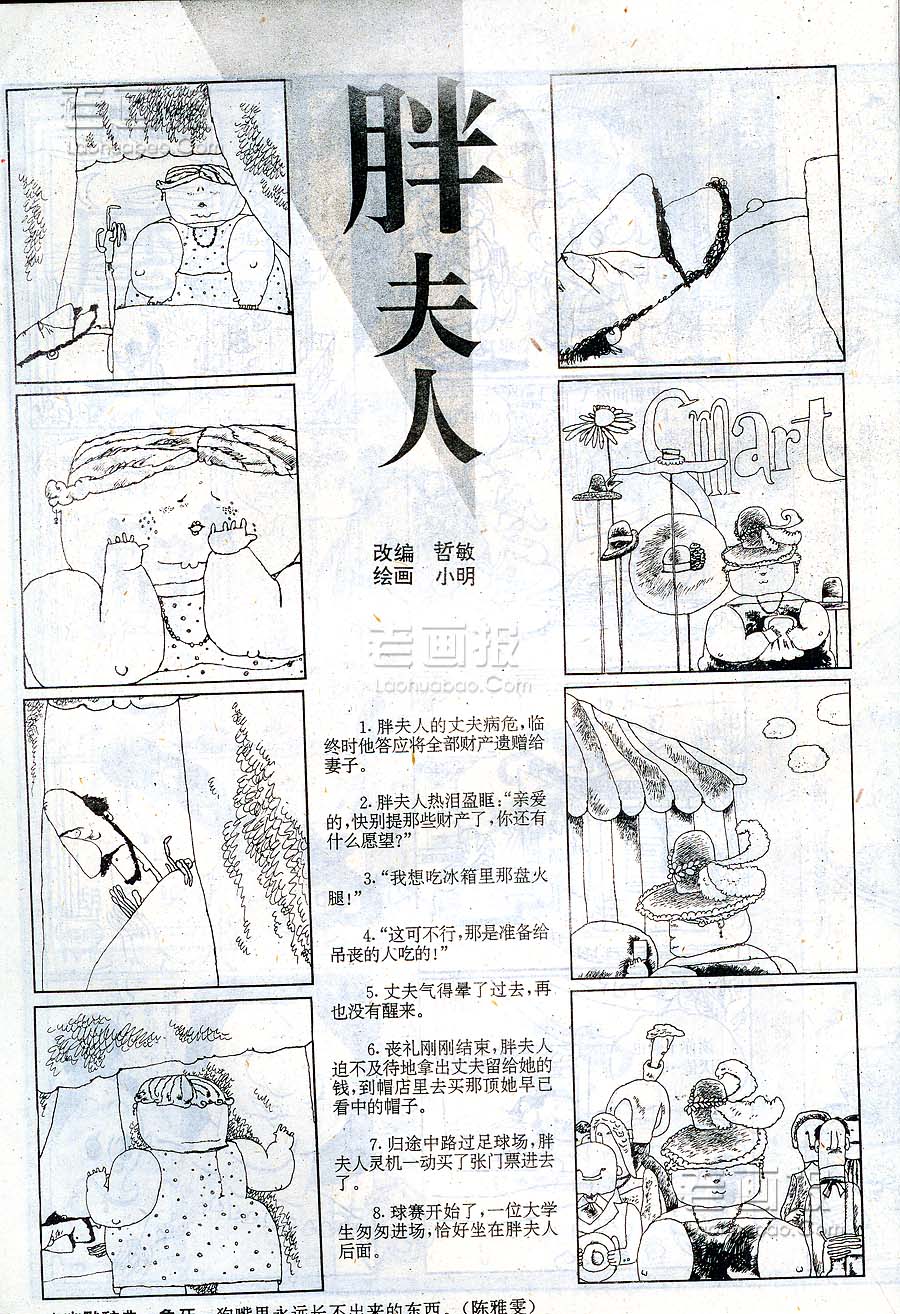 胖夫人
改编 哲敏
绘画 小明
1. 胖夫人的丈夫病危，临
终时他答应将全部财产遗赠给
妻子。
2. 胖夫人热泪盈眶：“亲爱
的，快别提那些财产了，你还有
什么愿望？”
3. “我想吃冰箱里那盘火
腿！”
4. “这可不行，那是准备给
吊丧的人吃的！”
5. 丈夫气得晕了过去，再
也没有醒来。
6. 丧礼刚刚结束，胖夫人
迫不及待地拿出丈夫留给她的
钱，到帽店里去买那顶她早已
看中的帽子。
7. 归途中路过足球场，胖
夫人灵机一动买了张门票进去
了。
8. 球赛开始了，一位大学
生匆匆进场，恰好坐在胖夫人
后面。
Cmart
老画报
Laohuabao.Com
老画报
Laohuabao.Com
老画报
狗嘴里永远长不出来的东西。（陈雅雯）